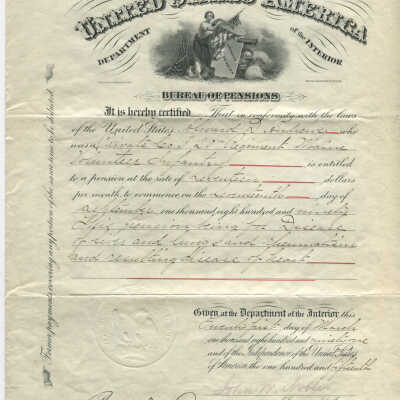 UNITED STATES OF AMERICA
DEPARTMENT of the INTERIOR
BUREAU OF PENSIONS
It is hereby certified That in conformity with the laws
of the United States who
was a Private Regiment Maine
Volunteer Infantry is entitled
to a pension at the rate of dollars
per month, to commence on the day of
September one thousand eight hundred and ninety
This pension being for Disease
of and lungs and rheumatism
and resulting disease of heart
Given at the Department of the Interior this
Twenty first day of March
one thousand eight hundred and ninety one
and of the Independence of the United States
of America, the one hundred and fifteenth
John W. Noble
Former payments covering any portion of the same time to be deducted.